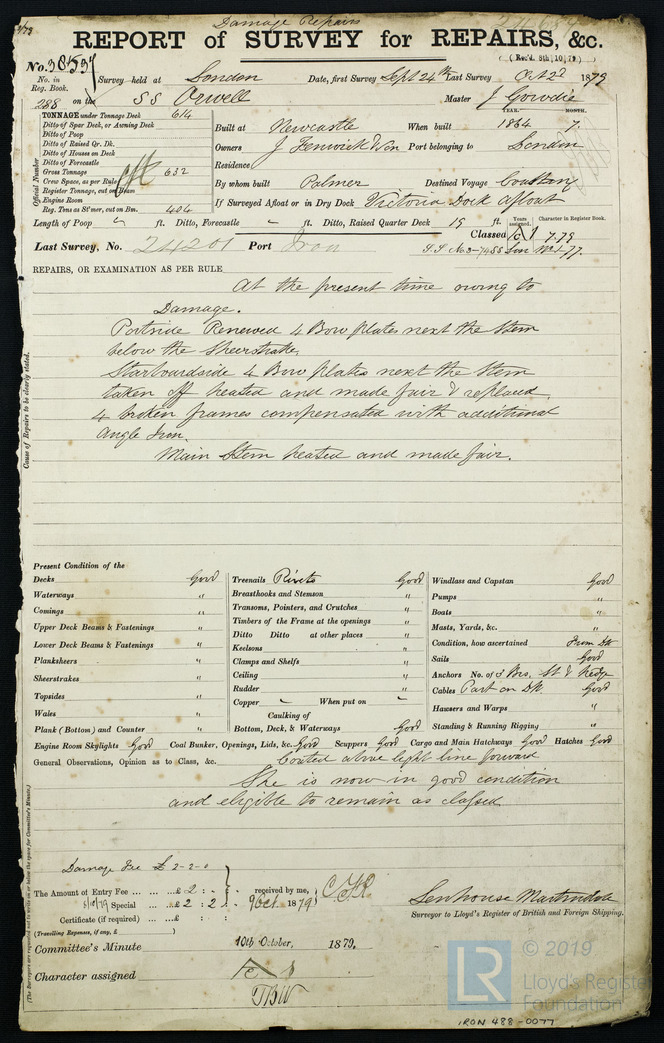 Damage Repairs
REPORT of SURVEY for REPAIRS, &c.
(Rec'd. 8th, 10, 79)
No. 38537 Survey held at London Date, first Survey Sept 24th Last Survey Oct 2d 1879
No. in Reg. Book.
288 on the SS Orwell Master J Gowdie
TONNAGE under Tonnage Deck 614
Ditto of Spar Deck, or Awning Deck
Ditto of Poop
Ditto of Raised Qr. Dk.
Ditto of Houses on Deck
Ditto of Forecastle
Gross Tonnage 632
Crew Space, as per Rule
Register Tonnage, cut on Beam
Engine Room
Reg. Tons as St'mer, cut on Bm. 404
Official Number
YEAR. MONTH.
Built at Newcastle When built 1864 7.
Owners J Fenwick & Son Port belonging to London
Residence
By whom built Palmer Destined Voyage Coasting
If Surveyed Afloat or in Dry Dock Victoria Dock afloat
Length of Poop " ft. Ditto, Forecastle " ft. Ditto, Raised Quarter Deck 19 ft.
Years assigned. Character in Register Book.
Classed 7.79
Last Survey, No. 24201 Port Iron
S.S No 3-74 SS Lon No 1-77.
REPAIRS, OR EXAMINATION AS PER RULE
At the present time owing to
Damage.
Portside Renewed 4 Bow plates next the Stem
below the Sheerstrake.
Starboardside 4 Bow plates next the Stem
taken off heated and made fair & replaced
4 broken frames compensated with additional
Angle Iron.
Main Stem heated and made fair.
Cause of Repairs to be clearly stated.
Present Condition of the
Decks Good
Waterways "
Comings "
Upper Deck Beams & Fastenings "
Lower Deck Beams & Fastenings "
Planksheers "
Sheerstrakes "
Topsides "
Wales "
Plank (Bottom) and Counter "
Treenails Rivets Good
Breasthooks and Stemson "
Transoms, Pointers, and Crutches "
Timbers of the Frame at the openings "
Ditto Ditto at other places "
Keelsons "
Clamps and Shelfs "
Ceiling "
Rudder "
Copper When put on
Caulking of
Bottom, Deck, & Waterways Good
Windlass and Capstan Good
Pumps "
Boats "
Masts, Yards, &c. "
Condition, how ascertained From Dk
Sails Good
Anchors No. of 3 Brs. St & Kedge
Cables Part on Dk. Good
Hawsers and Warps "
Standing & Running Rigging "
Engine Room Skylights Good Coal Bunker, Openings, Lids, &c. Good Scuppers Good Cargo and Main Hatchways Good Hatches Good
General Observations, Opinion as to Class, &c. Coated above light line forward
She is now in good condition
and eligible to remain as classed
Damage Fee £ 2-2-0
The Amount of Entry Fee £ 2 : - : - received by me,
Special £ 2 : 2 : - 9 Oct 1879
Certificate (if required) £
(Travelling Expenses, if any, £ )
Senhouse Martindale
Surveyor to Lloyd's Register of British and Foreign Shipping.
Committee's Minute 10th October, 1879.
Character assigned
TBW
LR
© 2019
Lloyd's Register
Foundation
IRON 488-0077